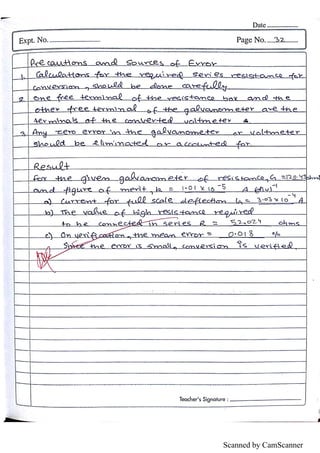 Date
Expt. No.
Page No. 32
Precautions and Sources of Error
1. Calculations for the required series resistance for
conversion, should be done carefully.
2. One free terminal of the resistance box and the
other free terminal of the galvanometer are the
terminals of the converted voltmeter.
3. Any zero error in the galvanometer or voltmeter
should be eliminated or accounted for.
Result
For the given galvanometer of resistance, G =
and figure of merit, k = 1.01 x 10⁻⁵ A (div)⁻¹
a) Current for full scale deflection Ig = 3.03 x 10⁻⁴ A
b) The value of high resistance required
to be connected in series R = ohms
c) On verification, the mean error = 0.018 %
Since the error is small, conversion is verified.
Teacher's Signature :
Scanned by CamScanner